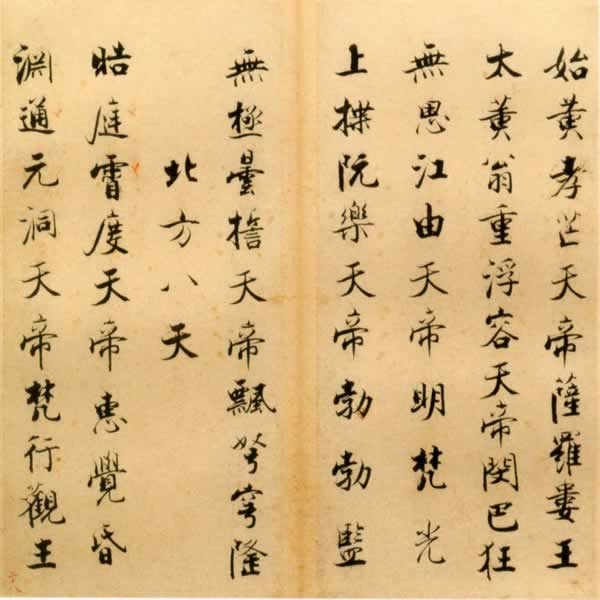 始黃孝芒天帝薩羅婁王
太黃翁重浮容天帝閔巴狂
無思江由天帝明梵光
上揲阮樂天帝勃勃監
無極曇天帝飄弩穹隆
北方八天
晧庭霄度天帝惠覺昏
淵通元洞天帝梵行觀生